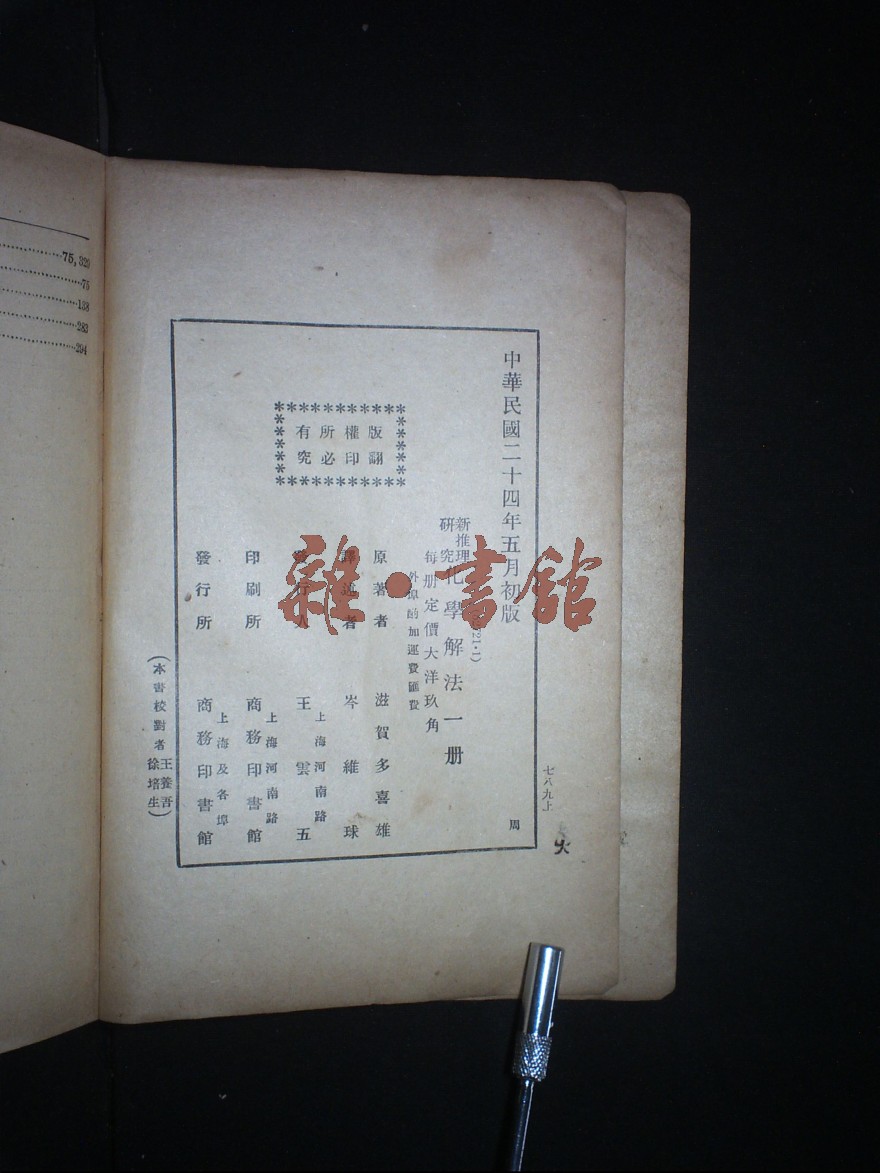 75, 329
75
138
283
294
中華民國二十四年五月初版
新推理
研究
化學解法一册
每册定價大洋玖角
外埠酌加運費匯費
版權所有
翻印必究
原著者 滋賀多喜雄
譯述者 岑維球
發行人 王雲五
上海河南路
印刷所 商務印書館
上海河南路
發行所 商務印書館
上海及各埠
(本書校對者 王養吾 徐培生)
七八九上
周
雜·書館